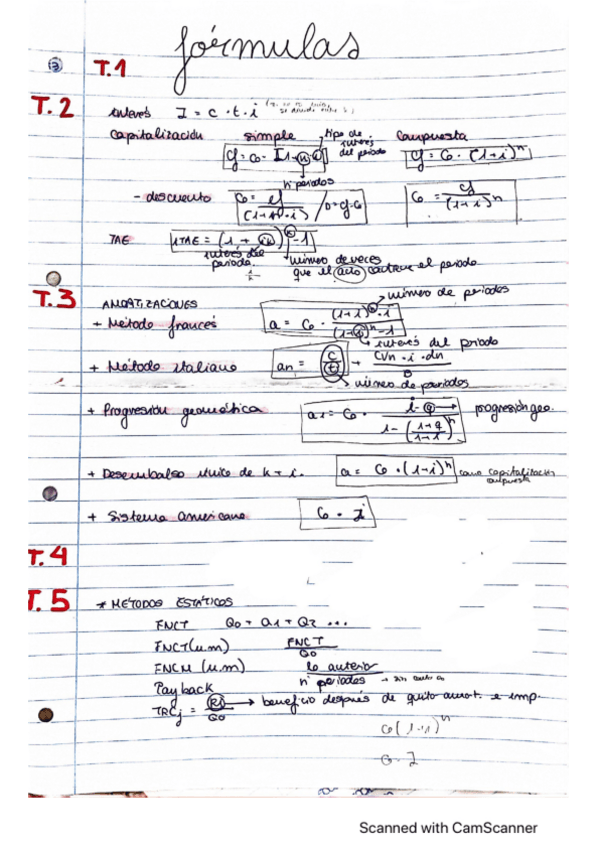 fórmulas
T.1
T.2
interés I = c · t · i
Capitalización simple tipo de interés del periodo compuesta
Cf = Co · [1+n·i] Cf = Co · (1+i)^n
nº periodos
- descuento Co = Cf / (1+n·i) / D = Cf-Co Co = Cf / (1+i)^n
TAE iTAE = (1 + ik)^k - 1
interés del periodo. número de veces
que el año contiene el periodo
T.3
AMORTIZACIONES número de periodos
+ Método francés a = Co · (1+i)^n · i / (1+i)^n - 1
interés del periodo
+ Método italiano an = C / t + CVn · i · dn / B
número de periodos
+ Progresión geométrica a1 = Co · i - q / 1 - (1+q / 1+i)^n progresión geo.
+ Desembolso único de k + i. a = Co · (1+i)^n como capitalización compuesta
+ Sistema americano Co · i
T.4
T.5
* MÉTODOS ESTÁTICOS
FNCT Q0 + Q1 + Q2 ...
FNCT (u.m) FNCT / Q0
FNCM (u.m) lo anterior / nº periodos
Payback
TRCj = Rj / Q0 → beneficio después de quito amort. e imp.
Co(1+i)^n
Co · I
Scanned with CamScanner